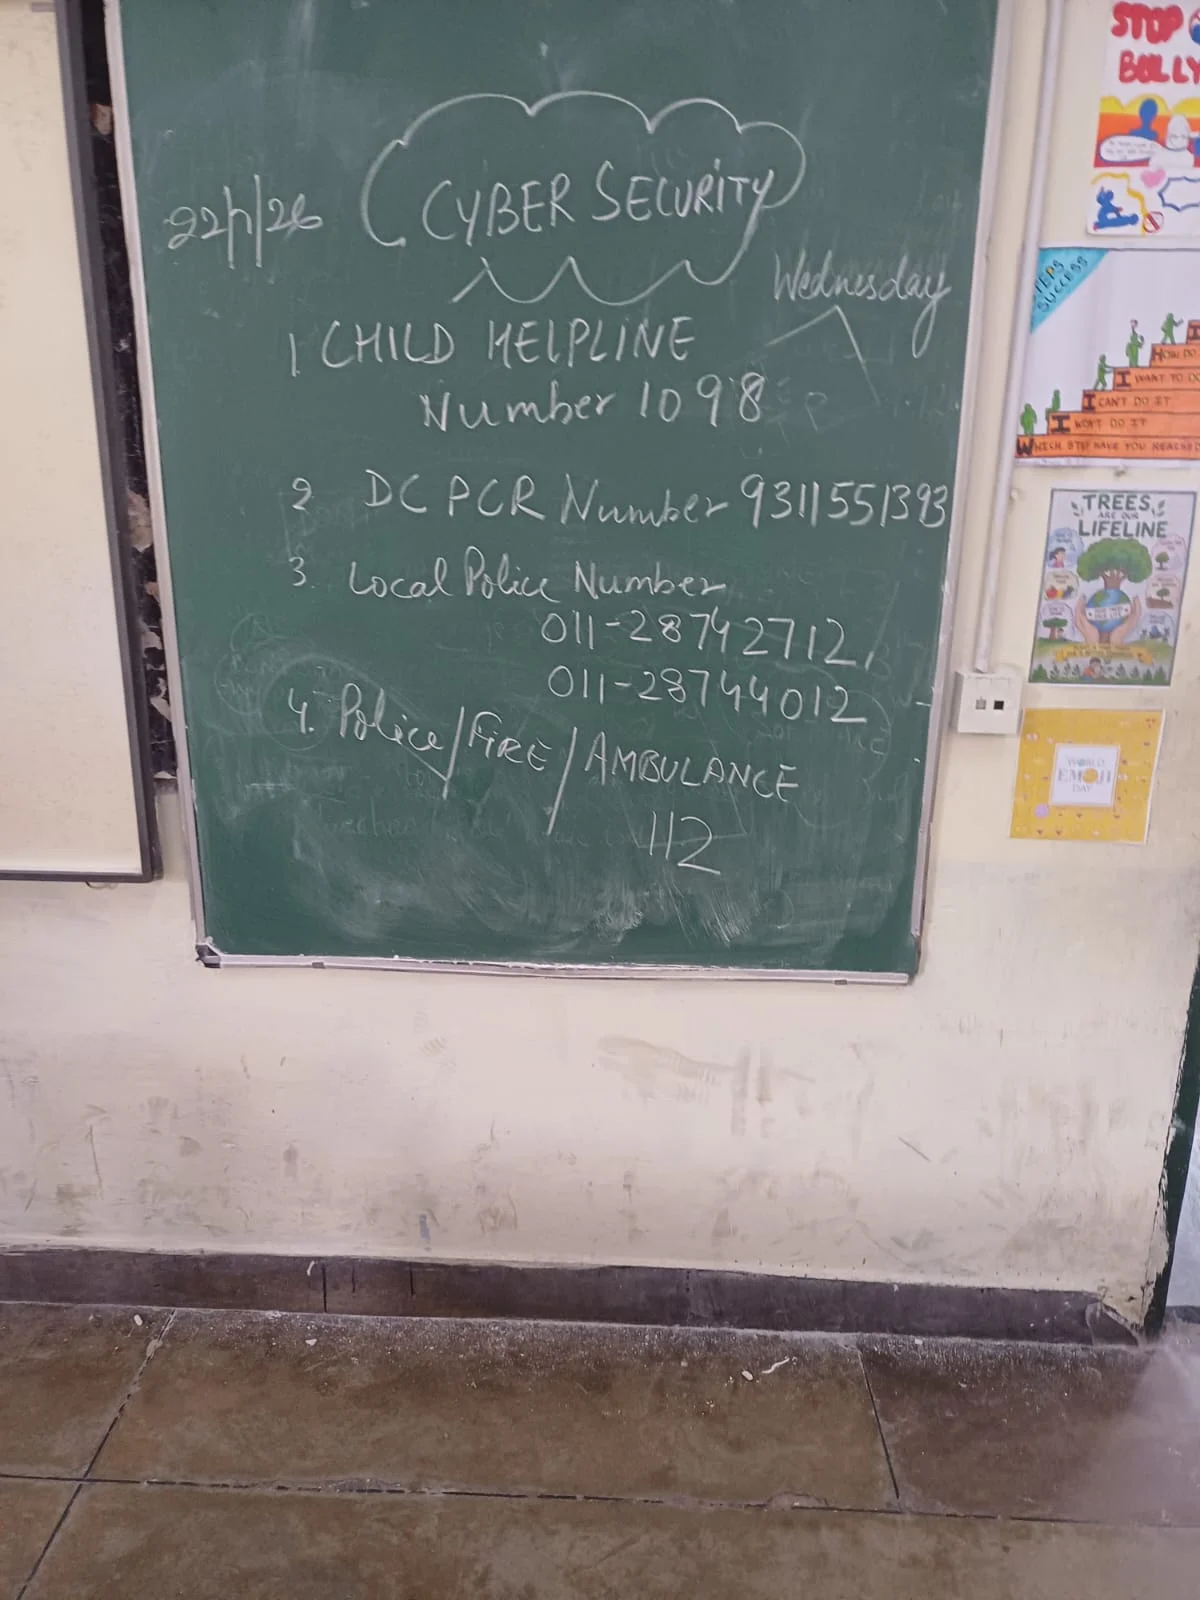 CYBER SECURITY
22/7/26
Wednesday
1. CHILD HELPLINE
Number 1098
2 DCPCR Number 9311551393
3. Local Police Number
011-28742712,
011-28744012
4. Police/FIRE/AMBULANCE
112
STOP
BULLY
STEPS
SUCCESS
HOW DO
I WANT TO DO
I CAN'T DO IT
I WON'T DO IT
WHICH STEP HAVE YOU REACHED
TREES
ARE OUR
LIFELINE
WORLD
EMOJI
DAY